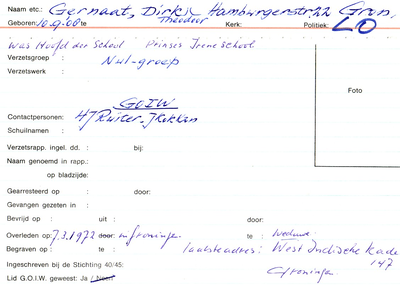 Naam etc.: Gernaat, Dirk Theodoor Hamburgerstr. 22 Gron.
Geboren: 10.9.08 te Kerk: Politiek: LO
was Hoofd der School Prinses Ireneschool
Verzetsgroep : Nut-groep
Verzetswerk :
GOIW
Contactpersonen: HJ Ruiter, J Rokken
Schuilnaam :
Foto
Verzetsrapp. ingel. dd. : bij:
Naam genoemd in rapp.:
op bladzijde:
Gearresteerd op : door:
Gevangen gezeten in :
Bevrijd op : uit : door:
Overleden op: 7.3.1972 door: in Groningen te :
Begraven op : te : laatste adres: West Indische Kade 147
Groningen
Ingeschreven bij de Stichting 40/45:
Lid G.O.I.W. geweest: Ja / Neen